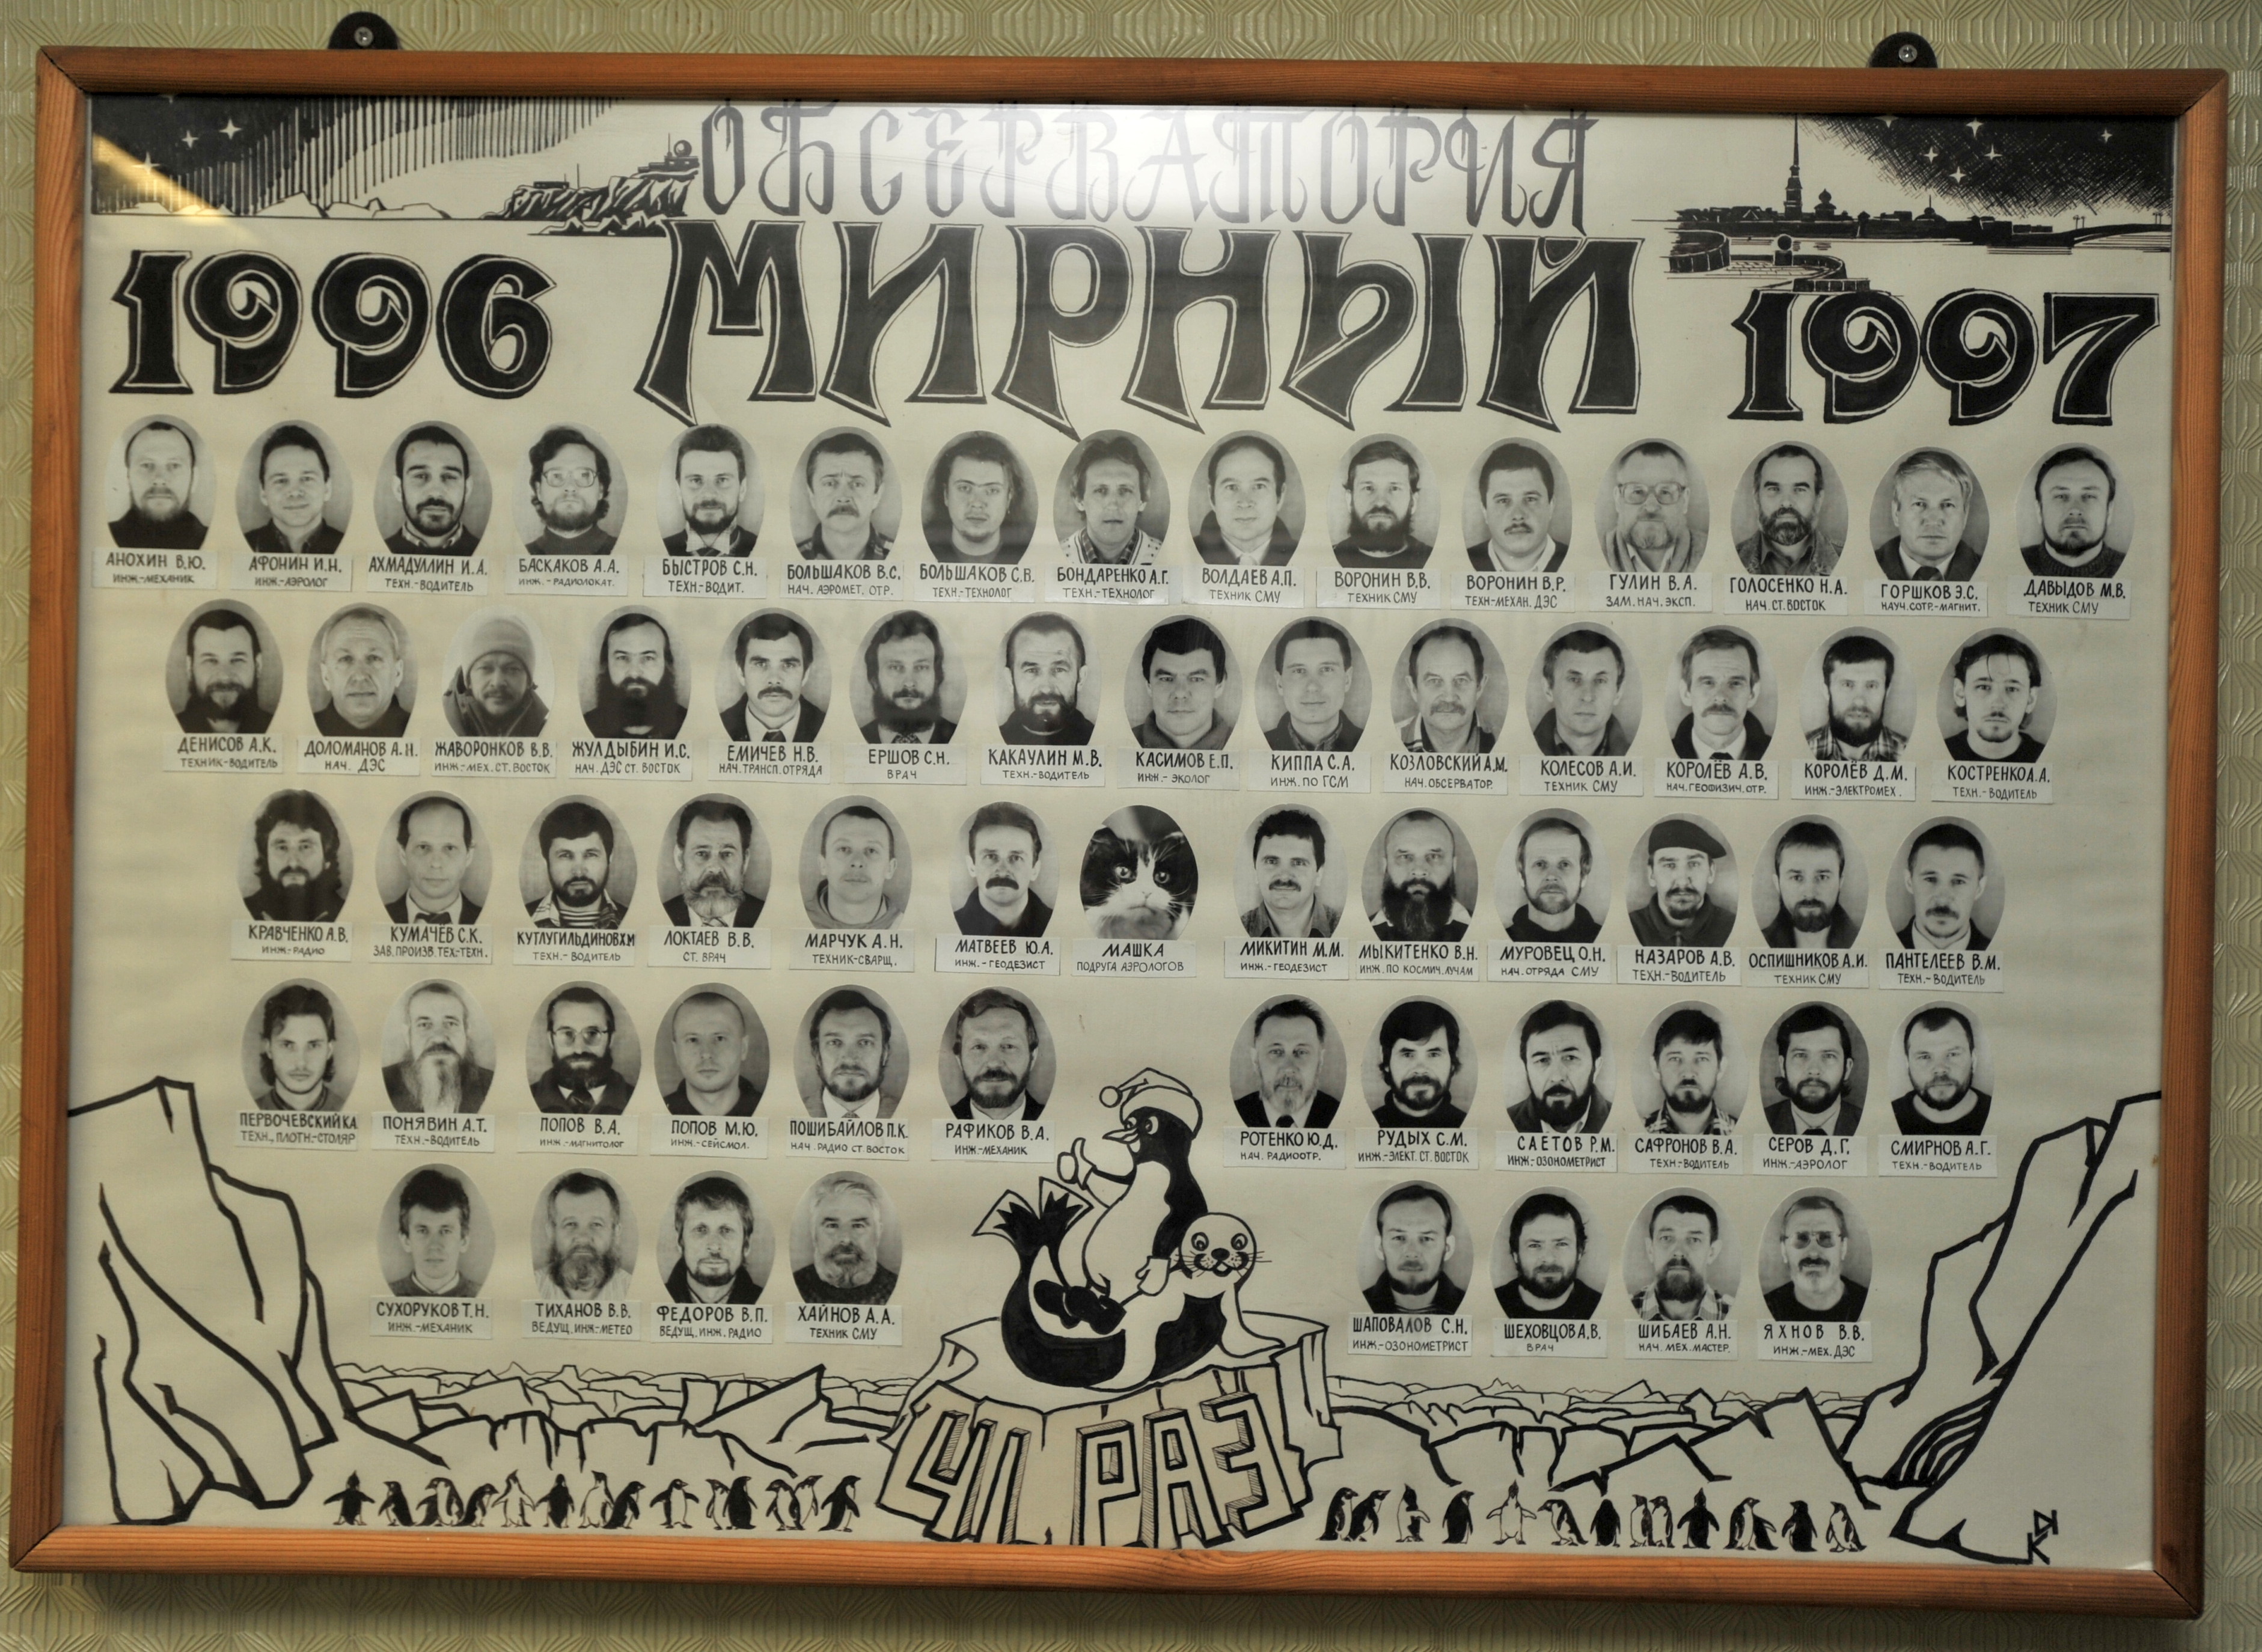 ОБСЕРВАТОРИЯ
1996 МИРНЫЙ 1997
АНОХИН В.Ю.
ИНЖ-МЕХАНИК
АФОНИН И.Н.
ИНЖ.-АЭРОЛОГ
АХМАДУЛЛИН И.А.
ТЕХН.-ВОДИТЕЛЬ
БАСКАКОВ А.А.
ИНЖ.-РАДИОЛОКАТ.
БЫСТРОВ С.Н.
ТЕХН.-ВОДИТ.
БОЛЬШАКОВ В.С.
НАЧ. АЭРОМЕТ. ОТР.
БОЛЬШАКОВ С.В.
ТЕХН.-ТЕХНОЛОГ
БОНДАРЕНКО А.Г.
ТЕХН.-ТЕХНОЛОГ
ВОЛДАЕВ А.П.
ТЕХНИК СМУ
ВОРОНИН В.В.
ТЕХНИК СМУ
ВОРОНИН В.Р.
ТЕХН-МЕХАН. ДЭС
ГУЛИН В.А.
ЗАМ. НАЧ. ЭКСП.
ГОЛОСЕНКО Н.А.
НАЧ. СТ. ВОСТОК
ГОРШКОВ Э.С.
НАУЧ. СОТР.-МАГНИТ.
ДАВЫДОВ М.В.
ТЕХНИК СМУ
ДЕНИСОВ А.К.
ТЕХНИК-ВОДИТЕЛЬ
ДОЛОМАНОВ А.Н.
НАЧ. ДЭС
ЖАВОРОНКОВ В.В.
ИНЖ.-МЕХ. СТ. ВОСТОК
ЖУЛДЫБИН И.С.
НАЧ. ДЭС СТ. ВОСТОК
ЕМИЧЕВ Н.В.
НАЧ. ТРАНСП. ОТРЯДА
ЕРШОВ С.Н.
ВРАЧ
КАКАУЛИН М.В.
ТЕХН.-ВОДИТЕЛЬ
КАСИМОВ Е.П.
ИНЖ.- ЭКОЛОГ
КИППА С.А.
ИНЖ. ПО ГСМ
КОЗЛОВСКИЙ А.М.
НАЧ. ОБСЕРВАТОР.
КОЛЕСОВ А.И.
ТЕХНИК СМУ
КОРОЛЁВ А.В.
НАЧ. ГЕОФИЗИЧ. ОТР.
КОРОЛЁВ Д.М.
ИНЖ.-ЭЛЕКТРОМЕХ.
КОСТРЕНКО А.А.
ТЕХН.-ВОДИТЕЛЬ
КРАВЧЕНКО А.В.
ИНЖ.-РАДИО
КУМАЧЁВ С.К.
ЗАВ. ПРОИЗВ. ТЕХ.-ТЕХН.
КУТЛУГИЛЬДИНОВ Х.М
ТЕХН.-ВОДИТЕЛЬ
ЛОКТАЕВ В.В.
СТ. ВРАЧ
МАРЧУК А.Н.
ТЕХНИК-СВАРЩ.
МАТВЕЕВ Ю.А.
ИНЖ.-ГЕОДЕЗИСТ
МАШКА
ПОДРУГА АЭРОЛОГОВ
МИКИТИН М.М.
ИНЖ.-ГЕОДЕЗИСТ
МЫКИТЕНКО В.Н.
ИНЖ. ПО КОСМИЧ. ЛУЧАМ
МУРОВЕЦ О.Н.
НАЧ. ОТРЯДА СМУ
НАЗАРОВ А.В.
ТЕХН.-ВОДИТЕЛЬ
ОСПИШНИКОВ А.И.
ТЕХНИК СМУ
ПАНТЕЛЕЕВ В.М.
ТЕХН.-ВОДИТЕЛЬ
ПЕРВОЧЕВСКИЙ К.А.
ТЕХН., ПЛОТН.-СТОЛЯР
ПОНЯВИН А.Т.
ТЕХН.-ВОДИТЕЛЬ
ПОПОВ В.А.
ИНЖ.-МАГНИТОЛОГ
ПОПОВ М.Ю.
ИНЖ.-СЕЙСМОЛ.
ПОШИБАЙЛОВ П.К.
НАЧ. РАДИО СТ. ВОСТОК
РАФИКОВ В.А.
ИНЖ.-МЕХАНИК
РОТЕНКО Ю.Д.
НАЧ. РАДИООТР.
РУДЫХ С.М.
ИНЖ.-ЭЛЕКТ. СТ. ВОСТОК
САЕТОВ Р.М.
ИНЖ.-ОЗОНОМЕТРИСТ
САФРОНОВ В.А.
ТЕХН.-ВОДИТЕЛЬ
СЕРОВ Д.Г.
ИНЖ.-АЭРОЛОГ
СМИРНОВ А.Г.
ТЕХН.-ВОДИТЕЛЬ
СУХОРУКОВ Т.Н.
ИНЖ.-МЕХАНИК
ТИХАНОВ В.В.
ВЕДУЩ. ИНЖ-МЕТЕО
ФЕДОРОВ В.П.
ВЕДУЩ. ИНЖ. РАДИО
ХАЙНОВ А.А.
ТЕХНИК СМУ
ШАПОВАЛОВ С.Н.
ИНЖ.-ОЗОНОМЕТРИСТ
ШЕХОВЦОВ А.В.
ВРАЧ
ШИБАЕВ А.Н.
НАЧ. МЕХ. МАСТЕР.
ЯХНОВ В.В.
ИНЖ.-МЕХ. ДЭС
41 РАЭ